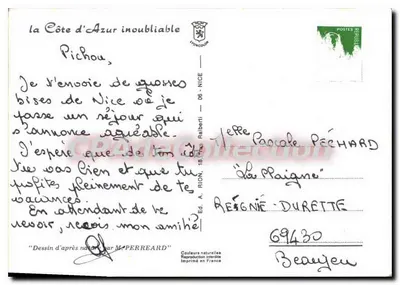 la Côte d'Azur inoubliable
Pichou,
Je t'envoie de grosses
bises de Nice où je
passe un séjour qui
s'annonce agréable.
J'espère que de ton côté
tu vas bien et que tu
profites pleinement de tes
vacances.
En attendant de te
revoir, reçois mon amitié
"Dessin d'après nature par M. PERREARD"
Ed. A. RION, 18 Raiberti — 06 - NICE
Couleurs naturelles
Reproduction interdite
Imprimé en France
POSTES
Melle Pascale PÉCHARD
"La Plaigne"
REIGNIE-DURETTE
69430
Beaujeu